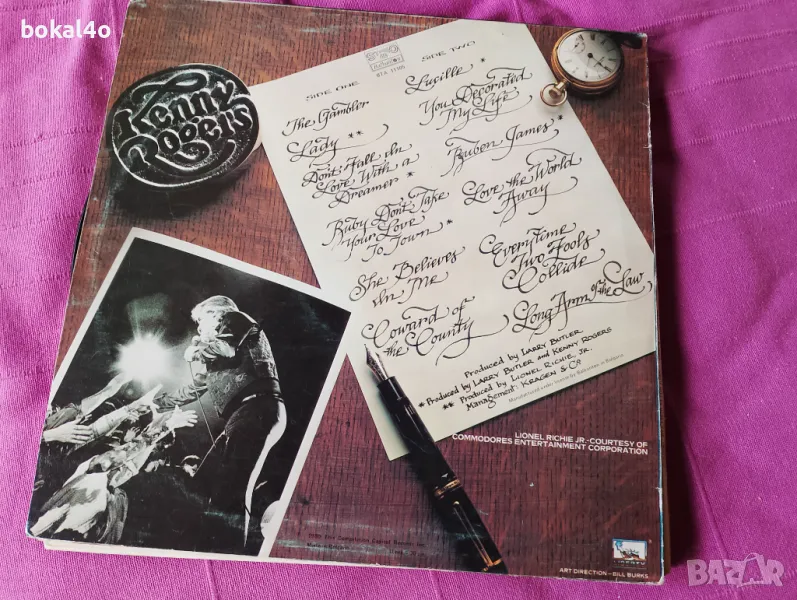 bokal4o
Kenny
Rogers
SIDE ONE
The Gambler
Lady **
Don't Fall In
Love With a
Dreamer *
Ruby Don't Take
Your Love
To Town *
She Believes
In Me
Coward of
the County
SIDE TWO
Lucille *
You Decorated
My Life
Ruben James *
Love the World
Away
Everytime
Two Fools
Collide
Long Arm of the Law
Produced by LARRY BUTLER
* Produced by LARRY BUTLER and KENNY ROGERS
** Produced by LIONEL RICHIE, JR.
Management: KRAGEN & Co
LIONEL RICHIE JR.-COURTESY OF
COMMODORES ENTERTAINMENT CORPORATION
LIBERTY
ART DIRECTION-BILL BURKS
BAZAR